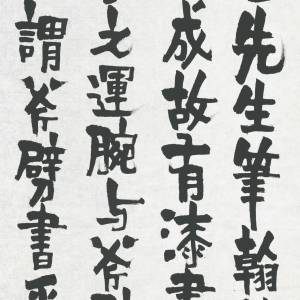 先生筆翰
成故有漆書
之運腕与斧
謂斧劈書